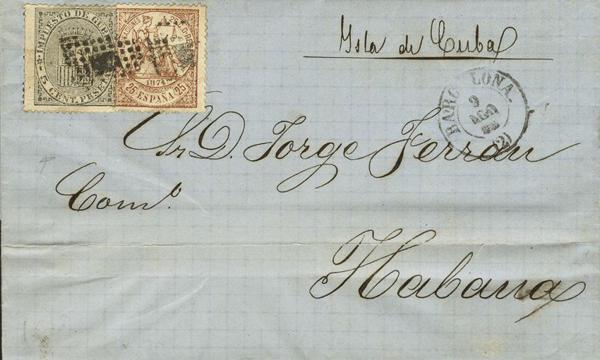 IMPUESTO DE GUE
5 CENT. PESETA
1874
25 ESPAÑA 25
Isla de Cuba
BARCELONA.
9
AGO
(2)
Sr. D. Jorge Ferran
Com.º
Habana